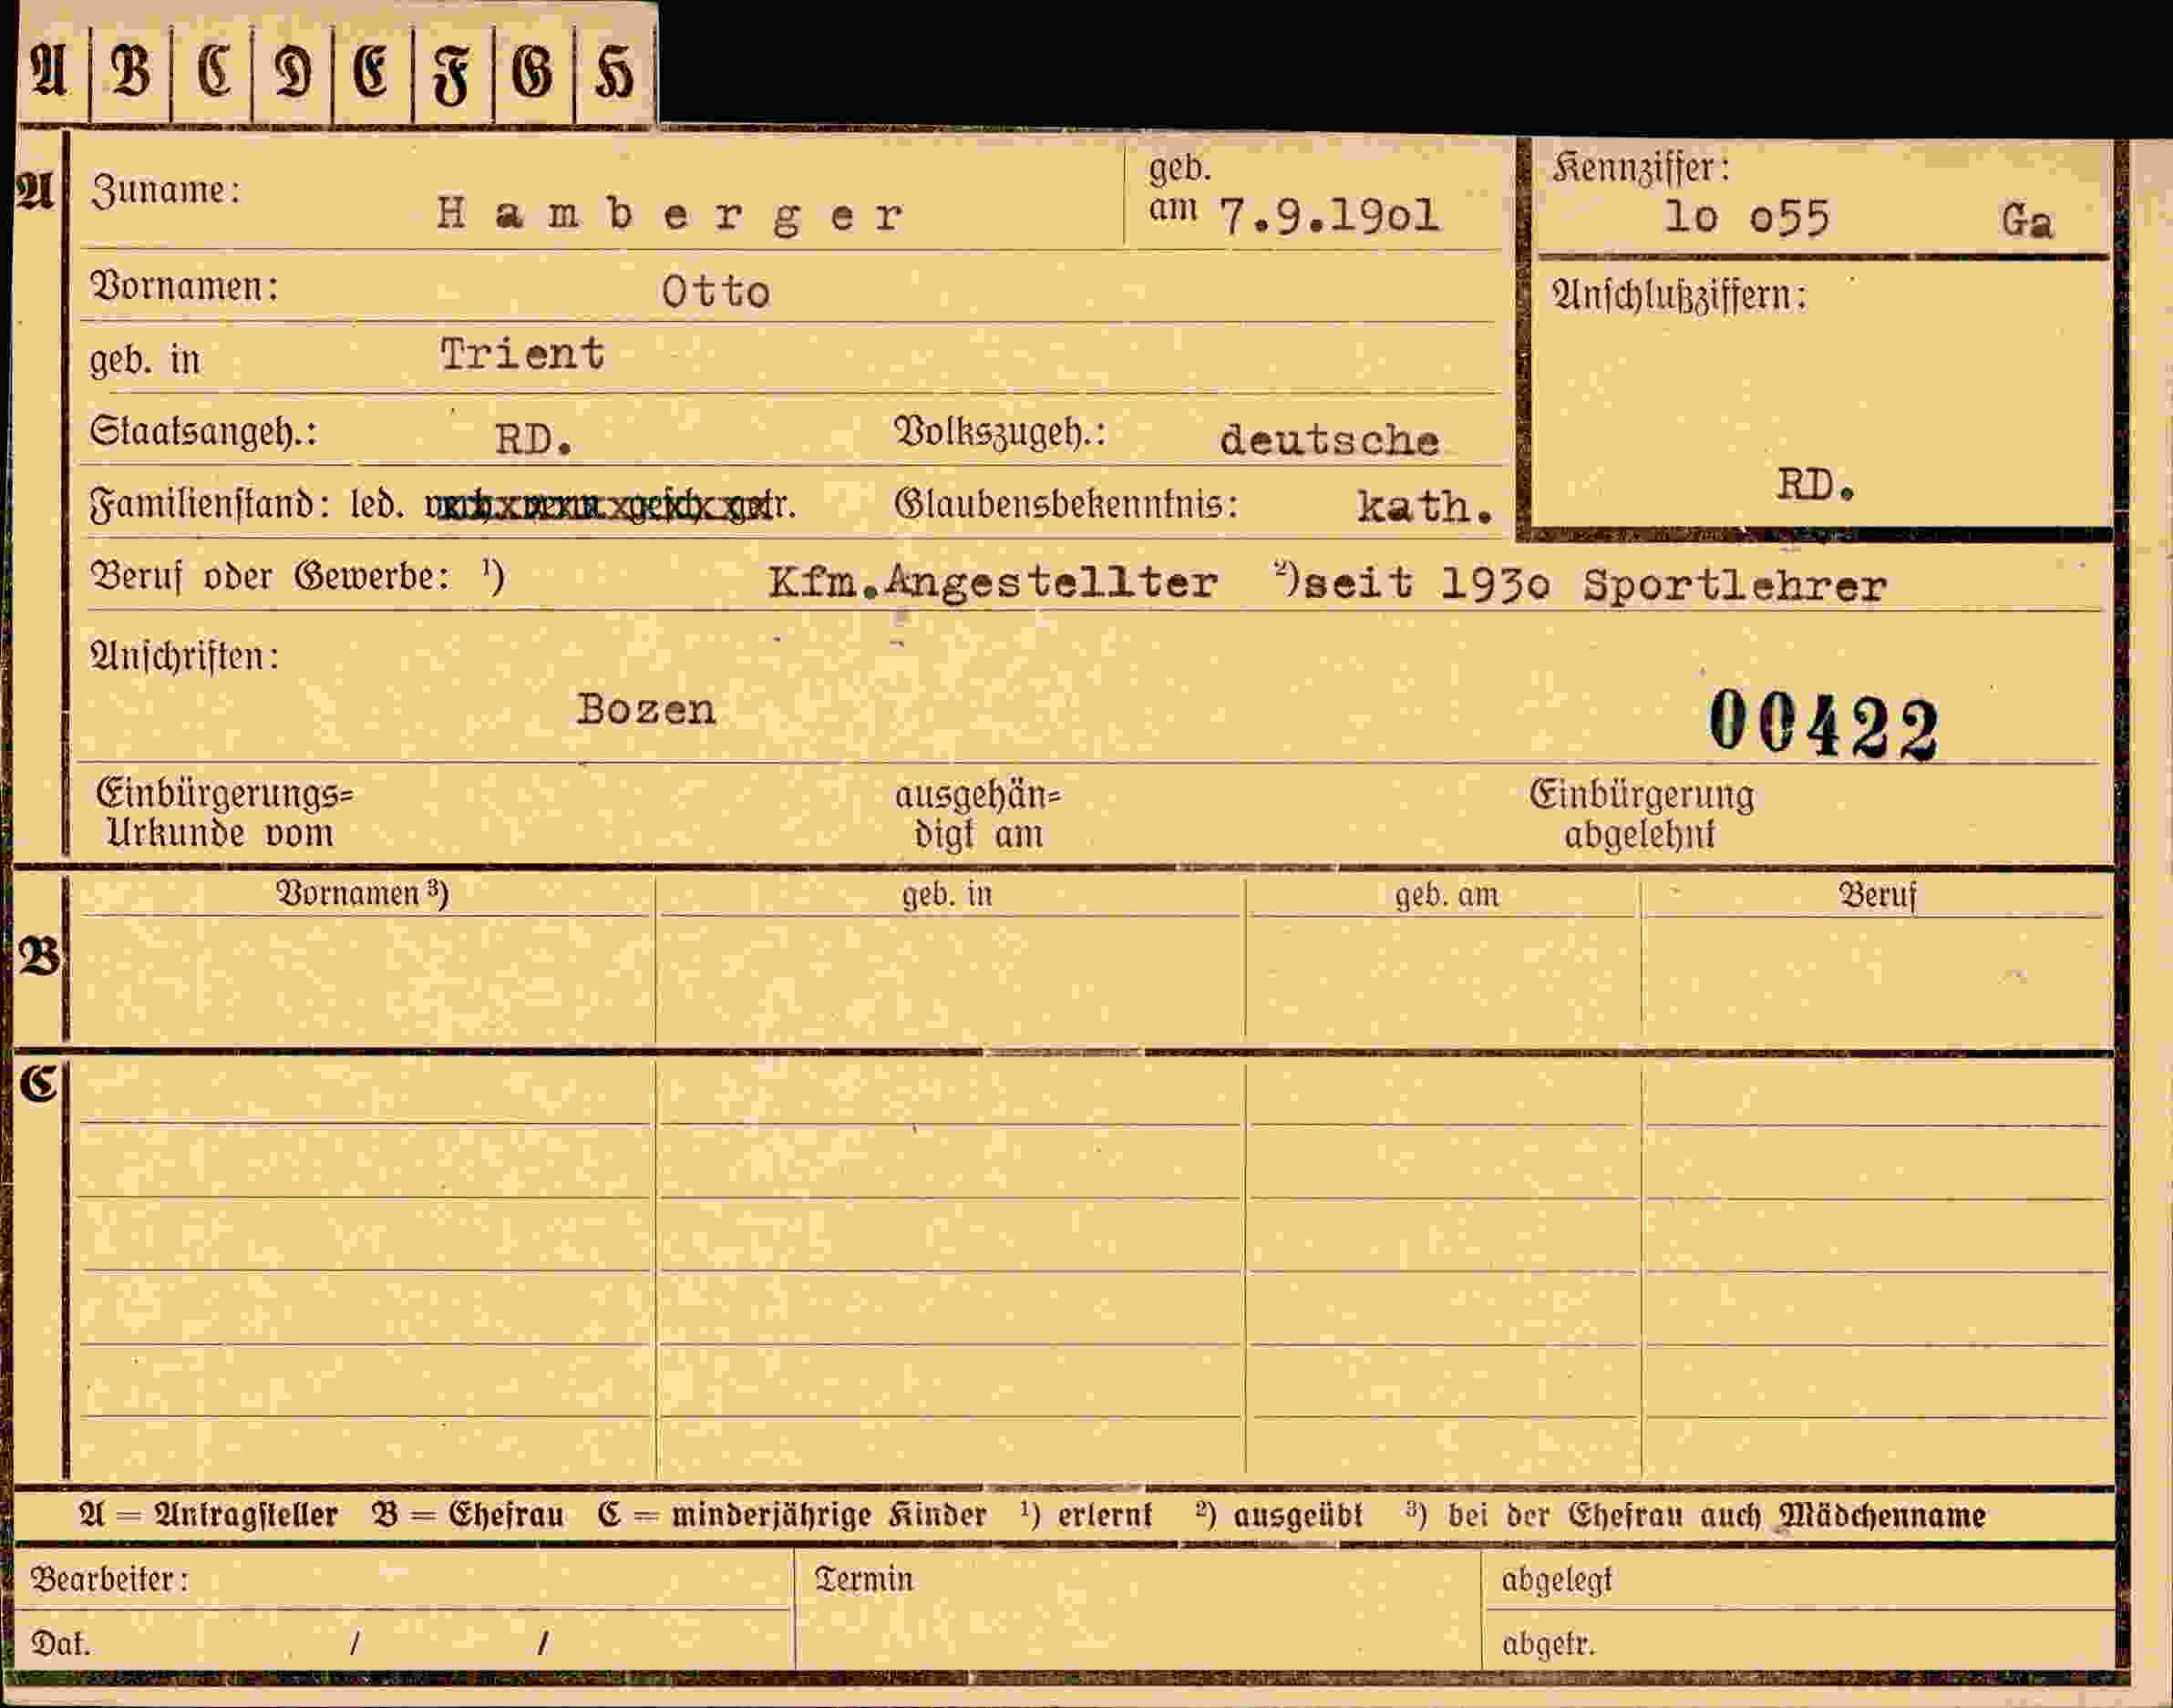 A B C D E F G H
A Zuname: Hamberger geb. am 7.9.19o1 Kennziffer: lo o55 Ga
Vornamen: Otto Anschlußziffern:
geb. in Trient
Staatsangeh.: RD. Volkszugeh.: deutsche
RD.
Familienstand: led. Glaubensbekenntnis: kath.
Beruf oder Gewerbe: ¹) Kfm.Angestellter ²)seit 193o Sportlehrer
Anschriften:
Bozen 00422
Einbürgerungs= ausgehän= Einbürgerung
Urkunde vom digt am abgelehnt
Vornamen ³) geb. in geb. am Beruf
B
C
A = Antragsteller B = Ehefrau C = minderjährige Kinder ¹) erlernt ²) ausgeübt ³) bei der Ehefrau auch Mädchenname
Bearbeiter: Termin abgelegt
Dat. / / abgetr.